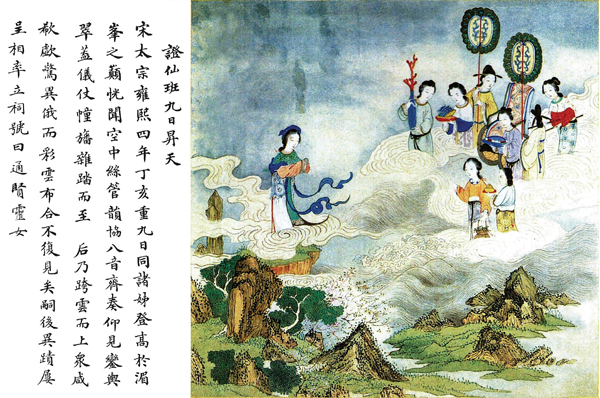 證仙班九日昇天
宋太宗雍熙四年丁亥重九日同諸姊登高於湄
峯之巔恍聞空中絲管韻協八音齊奏仰見鑾輿
翠蓋儀仗幢旛雜踏而至 后乃跨雲而上衆咸
欷歔驚異俄而彩雲布合不復見矣嗣後異蹟屢
呈相率立祠號曰通賢靈女